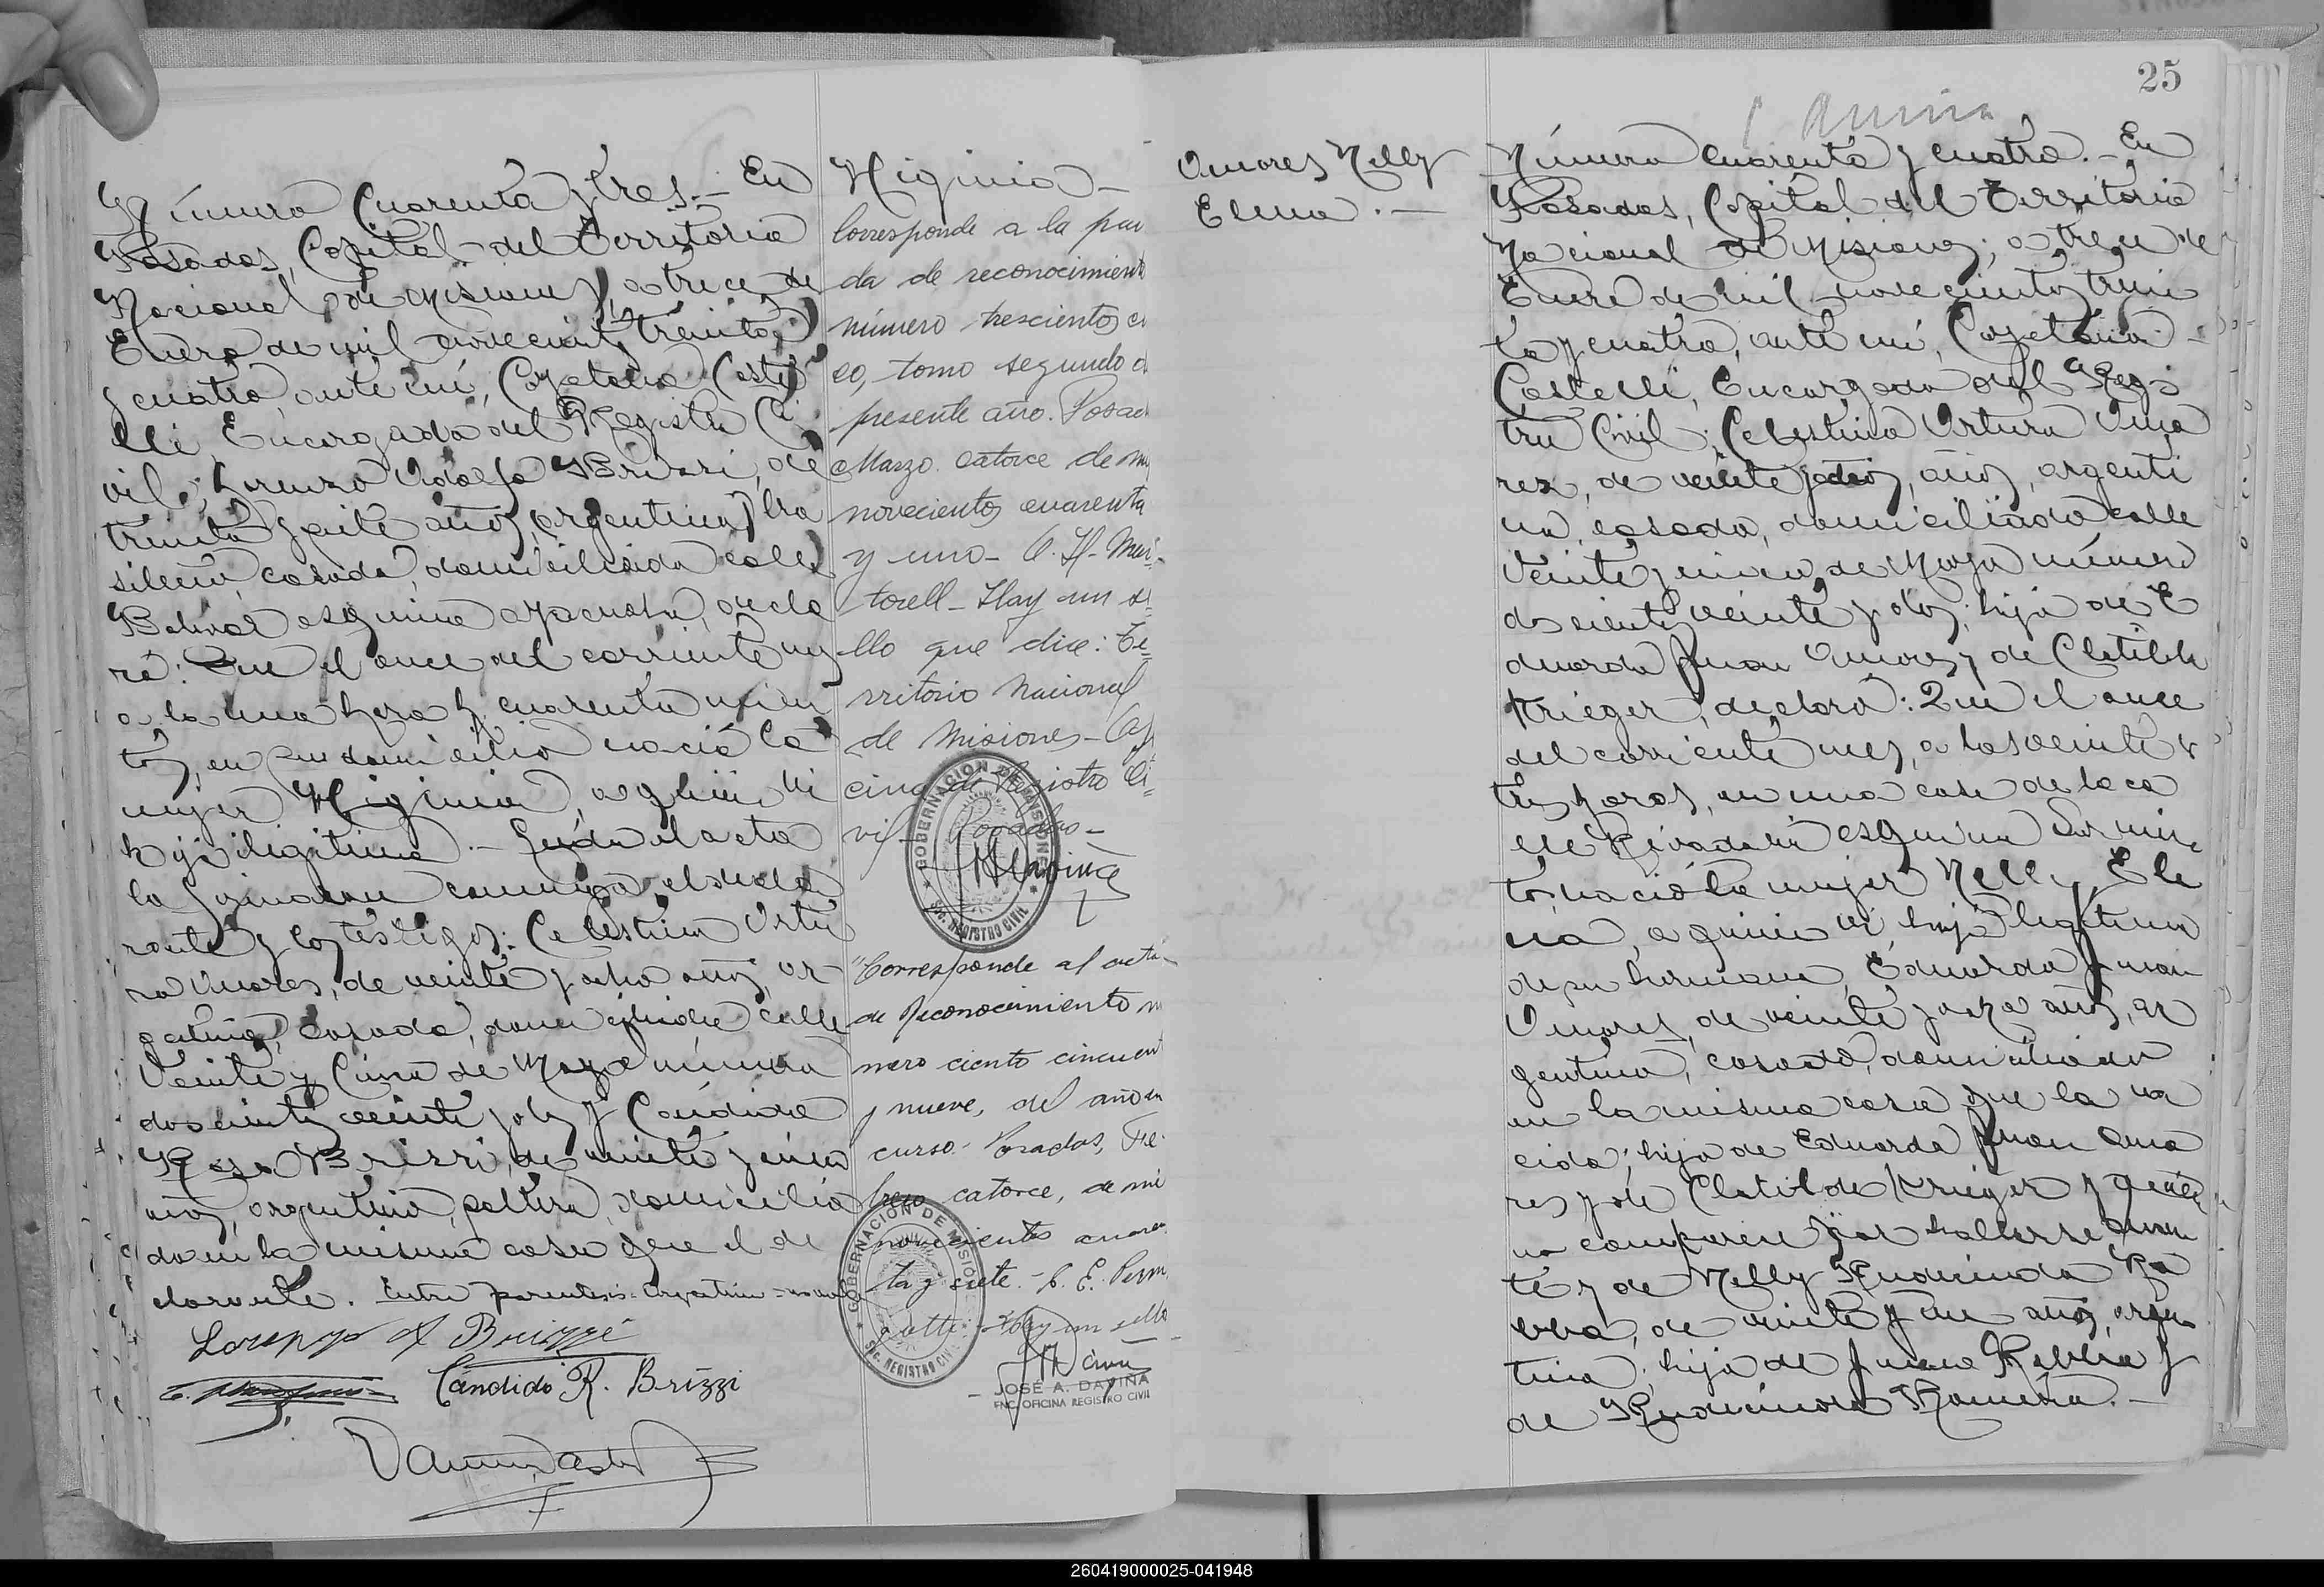 Número Cuarenta y tres.- En
Posadas, Capital del Territorio
Nacional de Misiones, a trece de
Enero de mil novecientos treinta
y cuatro, ante mí, Cayetano Caste
lli, Encargado del Registro Ci
vil, Lorenzo Adolfo Brizzi, de
treinta y siete años, (argentino) bra
silero, casado, domiciliado calle
Bolivar esquina Ayacucho, decla
ró: Que el once del corriente mes
a la una hora y cuarenta minu
tos, en su domicilio nació la
mujer Higinia, a quien vi
hija ilegitima.- Leida el acta
la firmaron conmigo, el decla
rante y los testigos: Celestino Artu
ro Amores, de veinte y ocho años, ar
gentino, casado, domiciliado calle
Veinte y Cinco de Mayo número
doscientos veinte y dos y Cándido
R. Brizzi, de veinte y cinco
años, argentino, soltero, domicilia
do en la misma casa que el de
clarante. Entre parentesis- argentino-
Lorenzo A Brizzi
Cándido R. Brizzi
Higinia-
Corresponde a la par
da de reconocimient
número trescientos
co, tomo segundo d
presente año. Posad
Marzo catorce de m
novecientos cuarenta
y uno- C. H. Mar-
torell- Hay un se
llo que dice: Te=
rritorio Nacional
de Misiones-
cina de Registro Ci=
vil- Posadas-
GOBERNACION DE MISIONES
Sec. REGISTRO CIVIL
"Corresponde al acta
de Reconocimiento n
mero ciento cincuent
y nueve, del año en
curso- Posadas, Fe-
brero catorce, de mi
novecientos cuaren
ta y siete.-
Hay un sello
GOBERNACION DE MISIONES
Sec. REGISTRO CIVIL
JOSÉ A. DAVIÑA
ENC. OFICINA REGISTRO CIVIL
25
Amores Nelly
Elena.-
Número cuarenta y cuatro.- En
Posadas, Capital del Territorio
Nacional de Misiones, a trece de
Enero de mil novecientos trein
ta y cuatro, ante mí, Cayetano
Castelli, Encargado del Regis
tro Civil, Celestino Arturo Amo
res, de veinte y ocho, años, argenti
no, casado, domiciliado calle
Veinte y cinco de Mayo número
doscientos veinte y dos; hijo de E
duardo Juan Amores y de Clotilde
Krieger, declaró: Que el once
del corriente mes, a las veinte y
tres horas, en una casa de la ca
lle Rivadavia esquina Sarmien
to, nació la mujer Nelly Ele
na, a quien vi, hija legitima
de su hermano, Eduardo Juan
Amores, de veinte y años, ar
gentino, casado, domiciliado
en la misma casa que la na
cida; hijo de Eduardo Juan Amo
res y de Clotilde Krieger y quien
no comparece por hallarse ausen
te y de Nelly Rudecinda Ro
bba, de veinte y un años, argen
tina, hija de Juan Robba y
de Rudecinda Romero.-
260419000025-041948